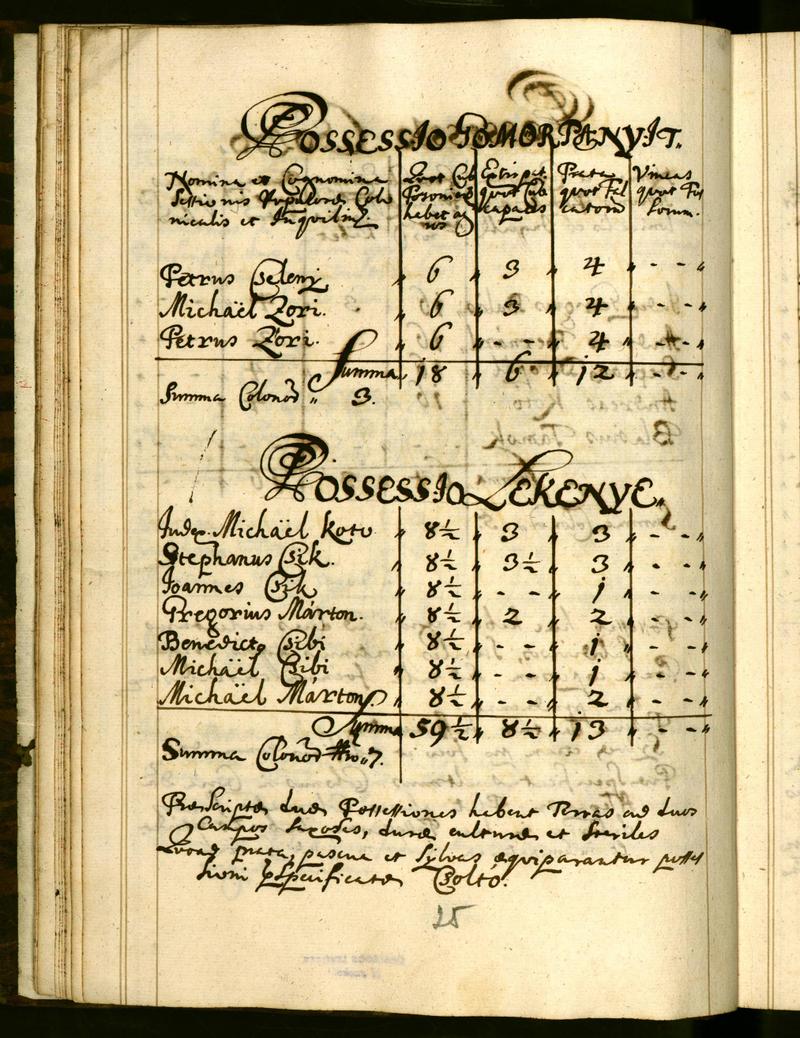 Possessio Gömör Panyit.
Nomina et Cognomina
Sessionis Colo
nicalis et Inquilin.
Quot Cub
Posonien
habet ag
ros
Extirpat
quot Cub
capaces
Prata
quot Fal
catorũ
Vineas
quot Fos
sorum.
Petrus Cseleny „ 6 „ 3 „ 4 „ - - „
Michaël Zori. „ 6 „ 3 „ 4 „ - - „
Petrus Zori. „ 6 „ - - „ 4 „ - - „
Summa „ 18 „ 6 „ 12 „ - - „
Summa Colonorũ „ 3.
Possessio Lekenye.
Judex Michaël Koto „ 8½ „ 3 „ 3 „ - - „
Stephanus Csik. „ 8½ „ 3½ „ 3 „ - - „
Joannes Csik „ 8½ „ - - „ 1 „ - - „
Gregorius Márton. „ 8½ „ 2 „ 2 „ - - „
Benedictg Csibi „ 8½ „ - - „ 1 „ - - „
Michaël Csibi „ 8½ „ - - „ 1 „ - - „
Michaël Márton. „ 8½ „ - - „ 2 „ - - „
Summa 59½ „ 8½ „ 13 „ - - „
Summa Colonorũ 7.
Præscriptæ duæ Possessiones habent Terras ad duos
Campos saxoses, duræ culturæ et steriles
Quoad prata, pascua et sylvas æquiparantur posses
sioni Csoltó.
25